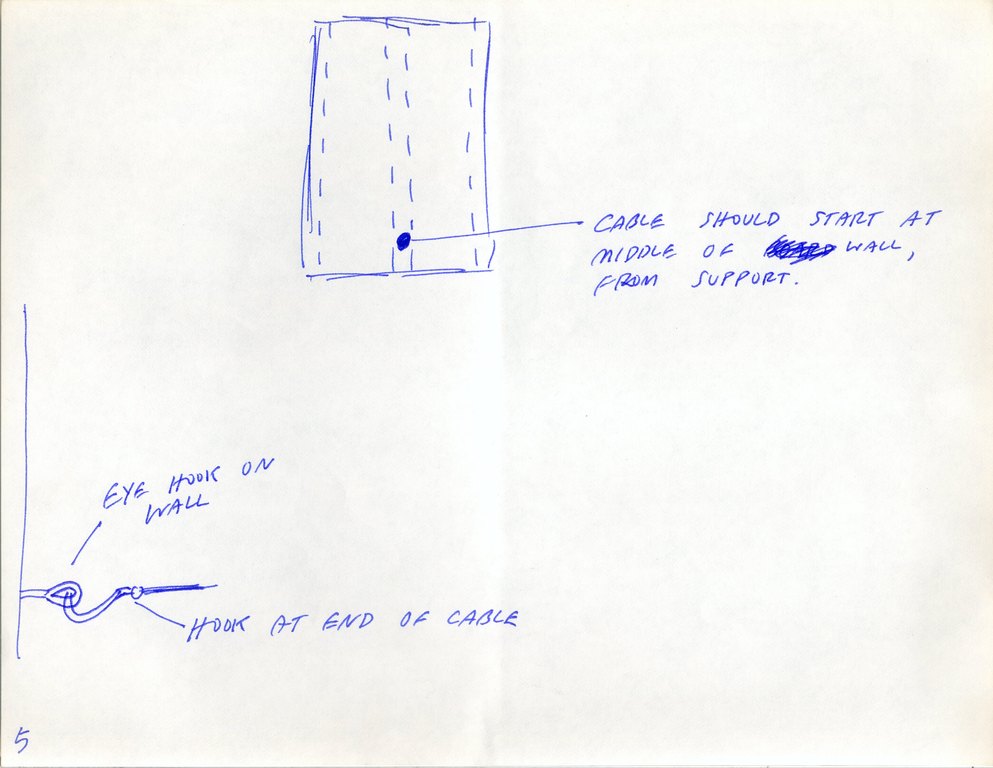 CABLE SHOULD START AT
MIDDLE OF WALL,
FROM SUPPORT.
EYE HOOK ON
WALL
HOOK AT END OF CABLE
5